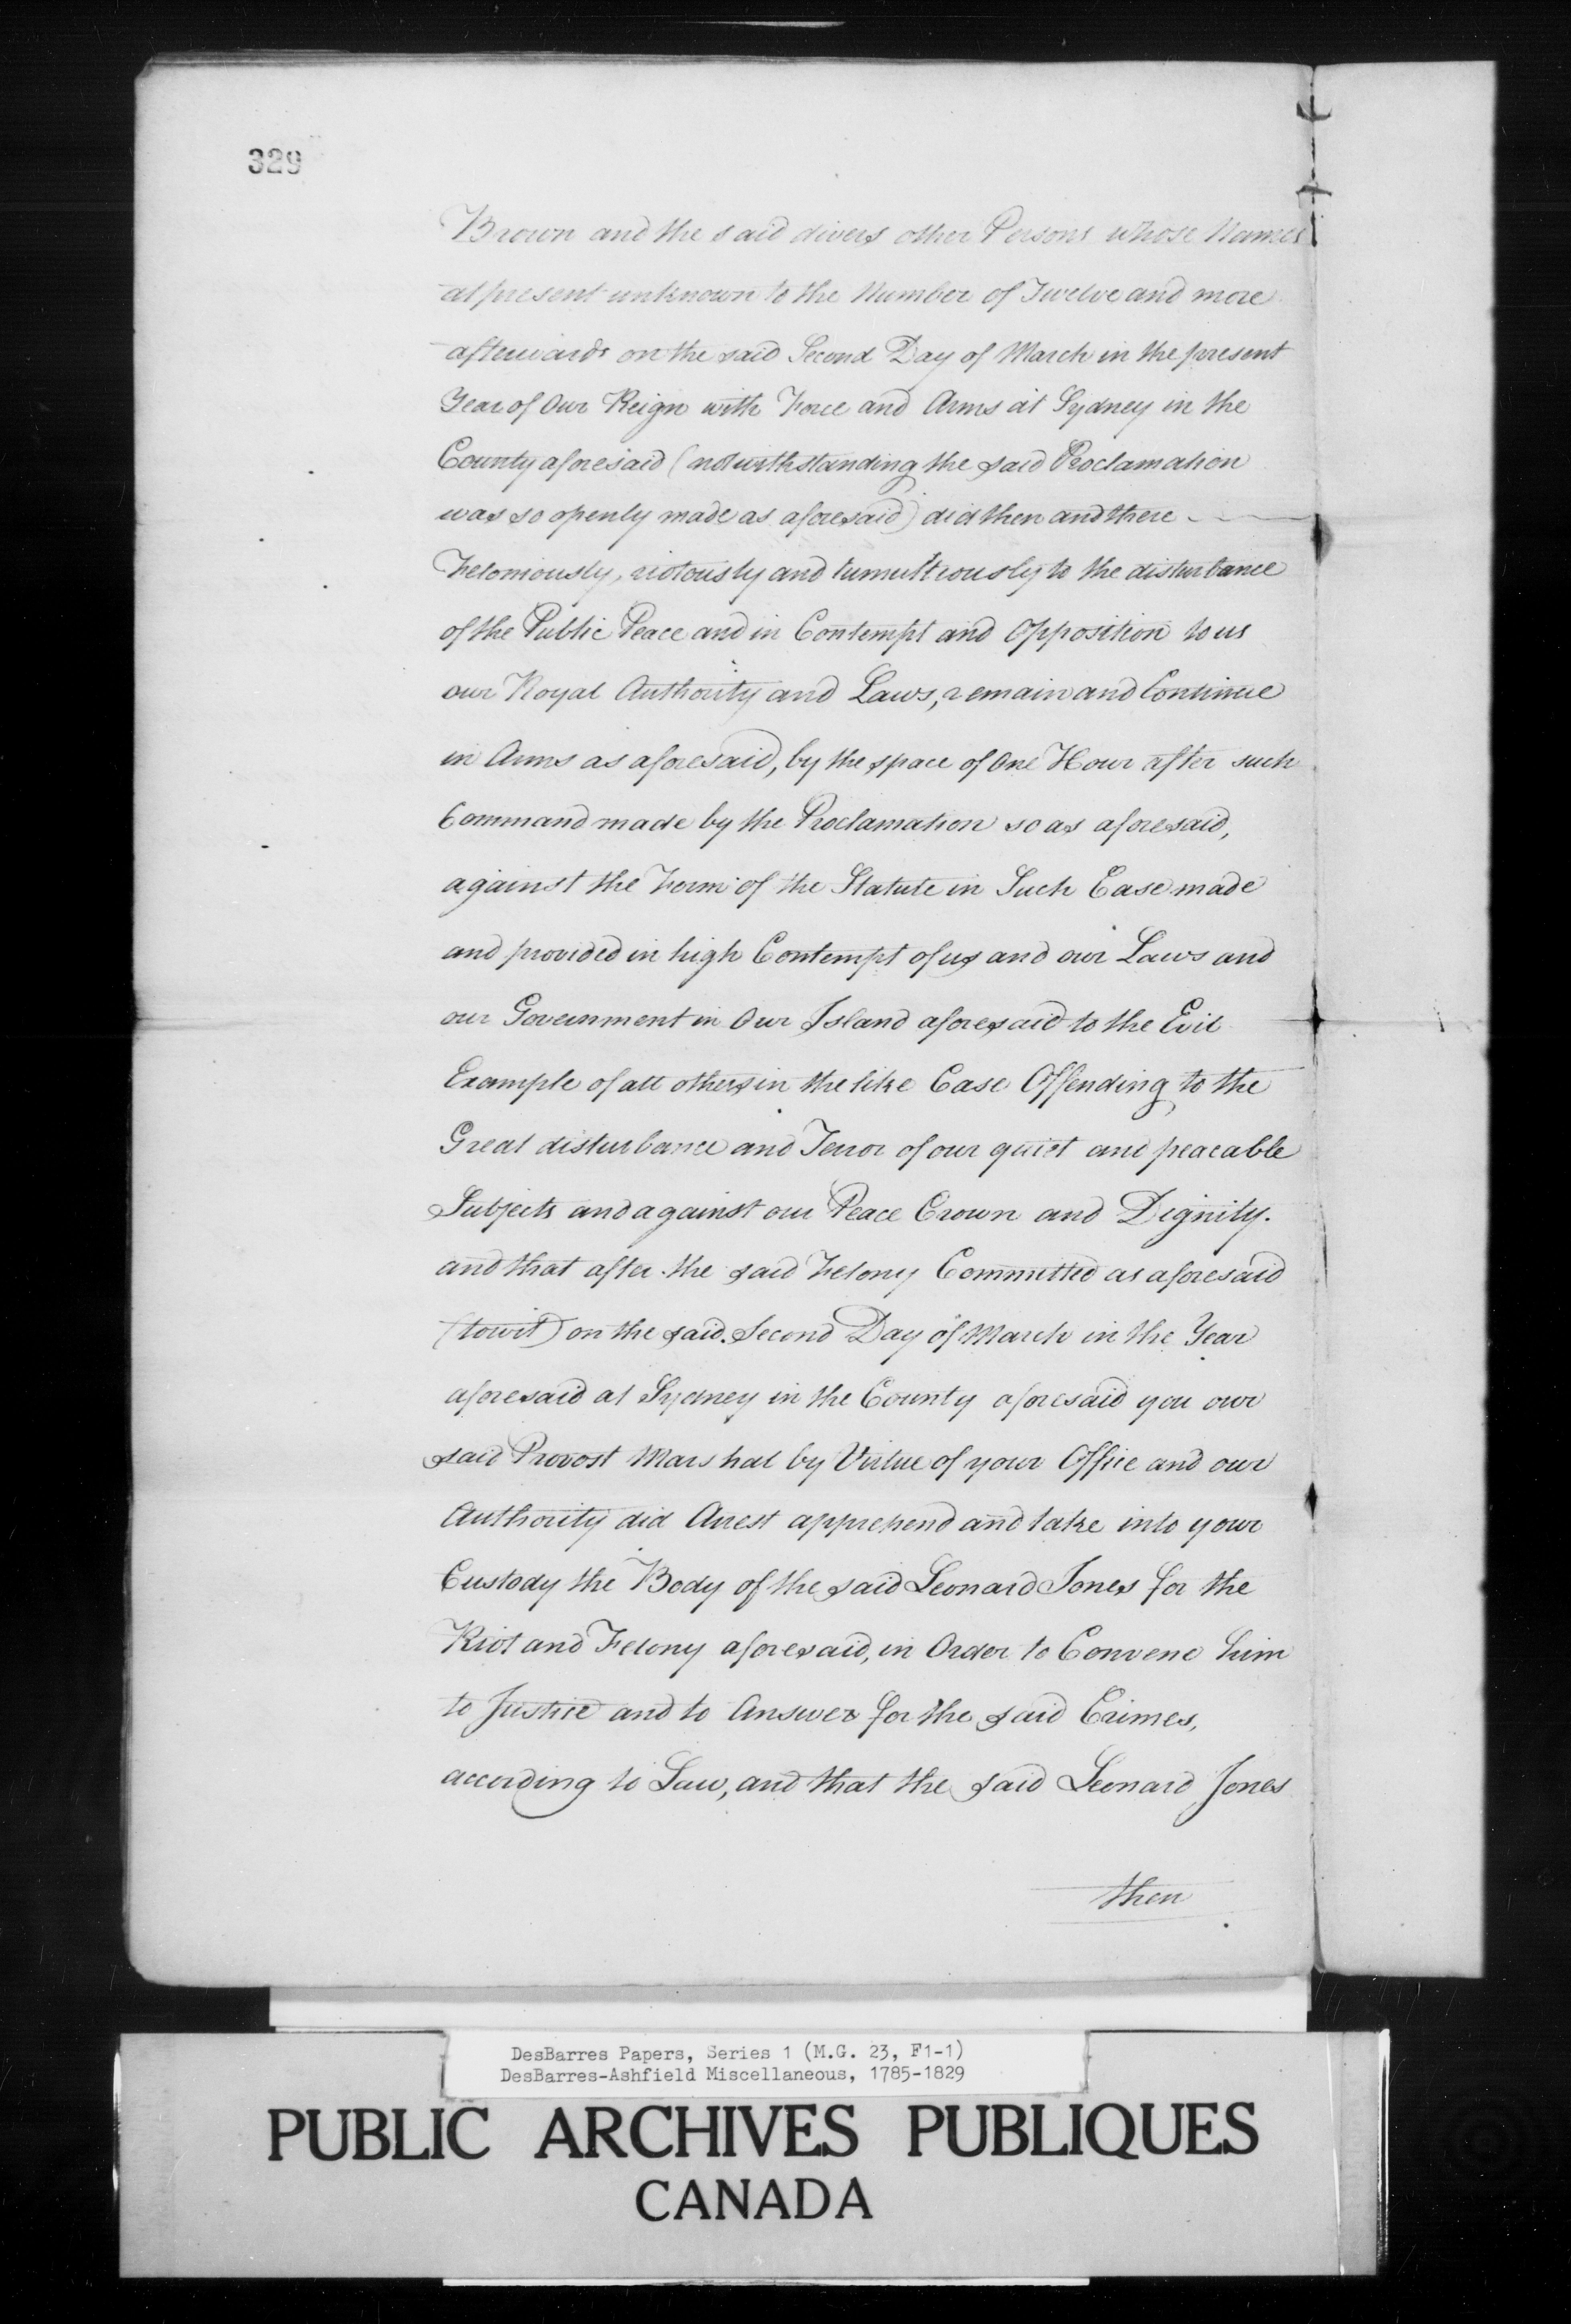 329
Brown and the said divers other Persons whose Names
at present unknown to the Number of Twelve and more
afterwards on the said Second Day of March in the present
Year of Our Reign with Force and Arms at Sydney in the
County aforesaid (notwithstanding the said Proclamation
was so openly made as aforesaid) did then and there
Feloniously, riotously and tumultuously to the disturbance
of the Public Peace and in Contempt and Opposition to us
our Royal Authority and Laws, remain and Continue
in Arms as aforesaid, by the space of One Hour after such
Command made by the Proclamation so as aforesaid,
against the Form of the Statute in Such Case made
and provided in high Contempt of us and our Laws and
our Government in Our Island aforesaid to the Evil
Example of all others in the like Case Offending to the
Great disturbance and Terror of our quiet and peacable
Subjects and against our Peace Crown and Dignity.
and that after the said Felony Committed as aforesaid
(towit) on the said Second Day of March in the Year
aforesaid at Sydney in the County aforesaid you our
said Provost Marshal by Virtue of your Office and our
Authority did Arest apprehend and take into your
Custody the Body of the said Leonard Jones for the
Riot and Felony aforesaid, in Order to Convene him
to Justice and to Answer for the said Crimes,
according to Law, and that the said Leonard Jones
then
DesBarres Papers, Series 1 (M.G. 23, F1-1)
DesBarres-Ashfield Miscellaneous, 1785-1829
PUBLIC ARCHIVES PUBLIQUES
CANADA